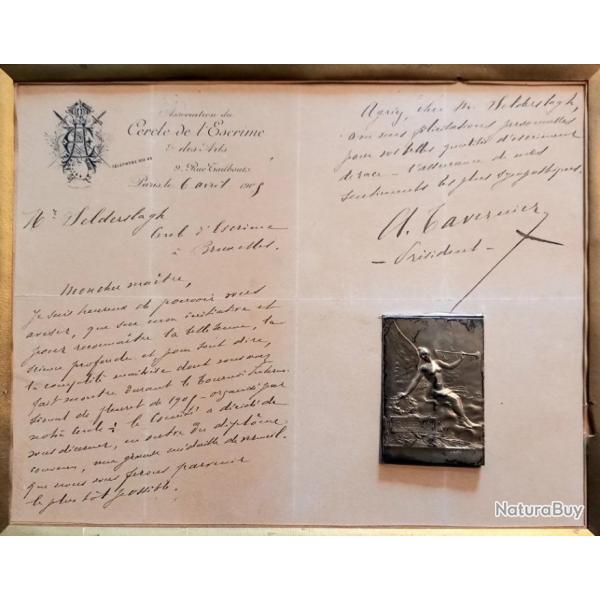 Association du
Cercle de l'Escrime
& des Arts
9, Rue Taitbout
Paris, le 6 avril 1905
Mr Selderslagh
Cercl d'Escrime
à Bruxelles.
Mon cher maître,
Je suis heureux de pouvoir vous
aviser, que sur mon initiative et
pour reconnaître la belle tenue, la
science profonde et, pour tout dire,
la complète maîtrise dont vous avez
fait montre durant le Tournoi Interna-
tional de fleuret de 1905 - organisé par
notre cercle - le Comité a décidé de
vous décerner, en outre du diplôme
convenu, une grande médaille de vermeil
que nous vous ferons parvenir
le plus tôt possible.
Agréez, cher Mr Selderslagh,
avec mes félicitations personnelles
pour vos belles qualités d'escrimeur
de race - l'assurance de mes
sentiments les plus sympathiques.
A. Tavernier
- Président -
NaturaBuy